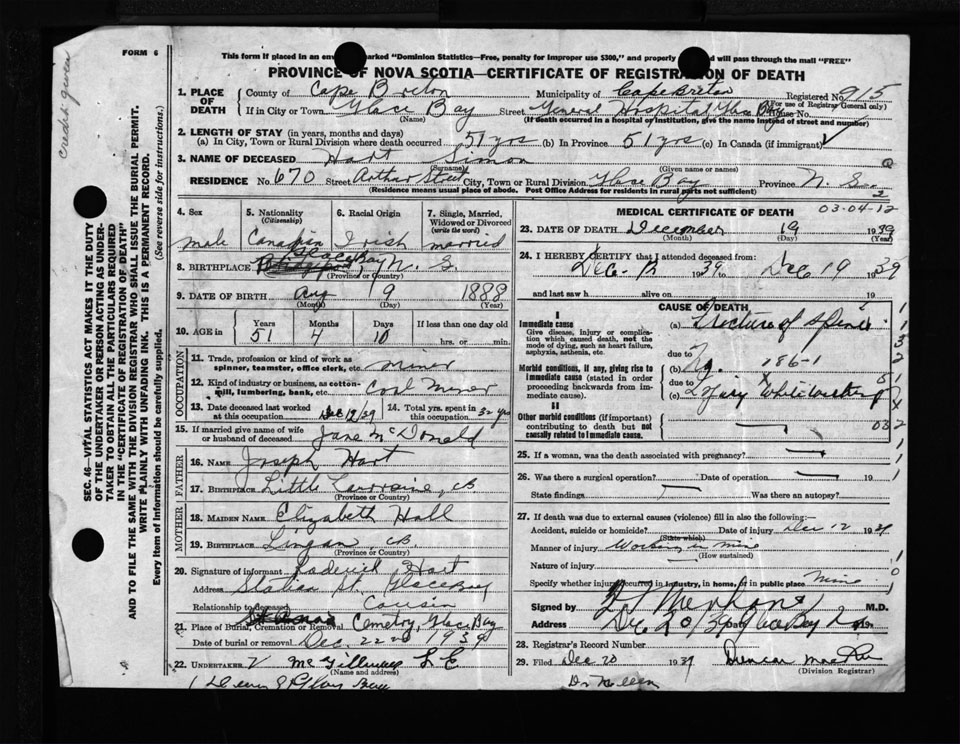 FORM 6
This form if placed in an env marked "Dominion Statistics—Free, penalty for improper use $300," and properly d will pass through the mail "FREE"
PROVINCE OF NOVA SCOTIA—CERTIFICATE OF REGISTRATION OF DEATH
1. PLACE OF DEATH County of Cape Breton Municipality of Cape Breton Registered No. 915
(For use of Registrar General only)
If in City or Town Glace Bay Street General Hospital Glace Bay House No.
(Name) (If death occurred in a hospital or institution, give the name instead of street and number)
2. LENGTH OF STAY (in years, months and days)
(a) In City, Town or Rural Division where death occurred 51 yrs (b) In Province 51 yrs (c) In Canada (if immigrant)
3. NAME OF DECEASED Hart Simon
(Surname) (Given name or names)
RESIDENCE No. 670 Street Arthur Street City, Town or Rural Division Glace Bay Province N. S.
(Residence means usual place of abode. Post Office Address for residents in rural parts not sufficient)
4. Sex 5. Nationality (Citizenship) 6. Racial Origin 7. Single, Married, Widowed or Divorced (write the word)
male Canadian Irish married
8. BIRTHPLACE Glace Bay N. S.
(Province or Country)
9. DATE OF BIRTH Aug 9 1888
(Month) (Day) (Year)
10. AGE in Years Months Days If less than one day old
51 4 10 hrs. or min.
OCCUPATION
11. Trade, profession or kind of work as spinner, teamster, office clerk, etc. miner
12. Kind of industry or business, as cotton-mill, lumbering, bank, etc. Coal Miner
13. Date deceased last worked at this occupation Dec 12/39 14. Total yrs. spent in this occupation 32 yrs
15. If married give name of wife or husband of deceased Jane McDonald
FATHER
16. NAME Joseph Hart
17. BIRTHPLACE Little Lorraine, CB
(Province or Country)
MOTHER
18. MAIDEN NAME Elizabeth Hall
19. BIRTHPLACE Lingan, CB
(Province or Country)
20. Signature of informant Roderick Hart
Address Station St. Glace Bay
Relationship to deceased Cousin
21. Place of Burial, Cremation or Removal Cemetry, Glace Bay
Date of burial or removal Dec. 22nd 1939
22. UNDERTAKER
(Name and address)
03-04-12
MEDICAL CERTIFICATE OF DEATH
23. DATE OF DEATH December 19 1939
(Month) (Day) (Year)
24. I HEREBY CERTIFY that I attended deceased from:
Dec 12 1939 to Dec 19 1939
and last saw h alive on 19
CAUSE OF DEATH
I
Immediate cause (a) Fracture of spine
Give disease, injury or complication which caused death, not the mode of dying, such as heart failure, asphyxia, asthenia, etc.
due to
Morbid conditions, if any, giving rise to immediate cause (stated in order proceeding backwards from immediate cause).
(b) 186-1
due to
(c) Injury While working
II
Other morbid conditions (if important) contributing to death but not causally related to immediate cause.
25. If a woman, was the death associated with pregnancy?
26. Was there a surgical operation? Date of operation
State findings Was there an autopsy?
27. If death was due to external causes (violence) fill in also the following:
Accident, suicide or homicide? Date of injury Dec 12 1939
(State which)
Manner of injury Working in mine
(How sustained)
Nature of injury
Specify whether injury occurred in industry, in home, or in public place Mine
Signed by M.D.
Address Dec 20/39 Date Glace Bay
28. Registrar's Record Number
29. Filed Dec 20 1939
(Division Registrar)
SEC. 46—VITAL STATISTICS ACT MAKES IT THE DUTY
OF THE UNDERTAKER OR PERSON ACTING AS UNDERTAKER TO OBTAIN ALL THE PARTICULARS REQUIRED
IN THE "CERTIFICATE OF REGISTRATION OF DEATH"
AND TO FILE THE SAME WITH THE DIVISION REGISTRAR WHO SHALL ISSUE THE BURIAL PERMIT.
WRITE PLAINLY WITH UNFADING INK. THIS IS A PERMANENT RECORD.
Every item of information should be carefully supplied. (See reverse side for instructions.)